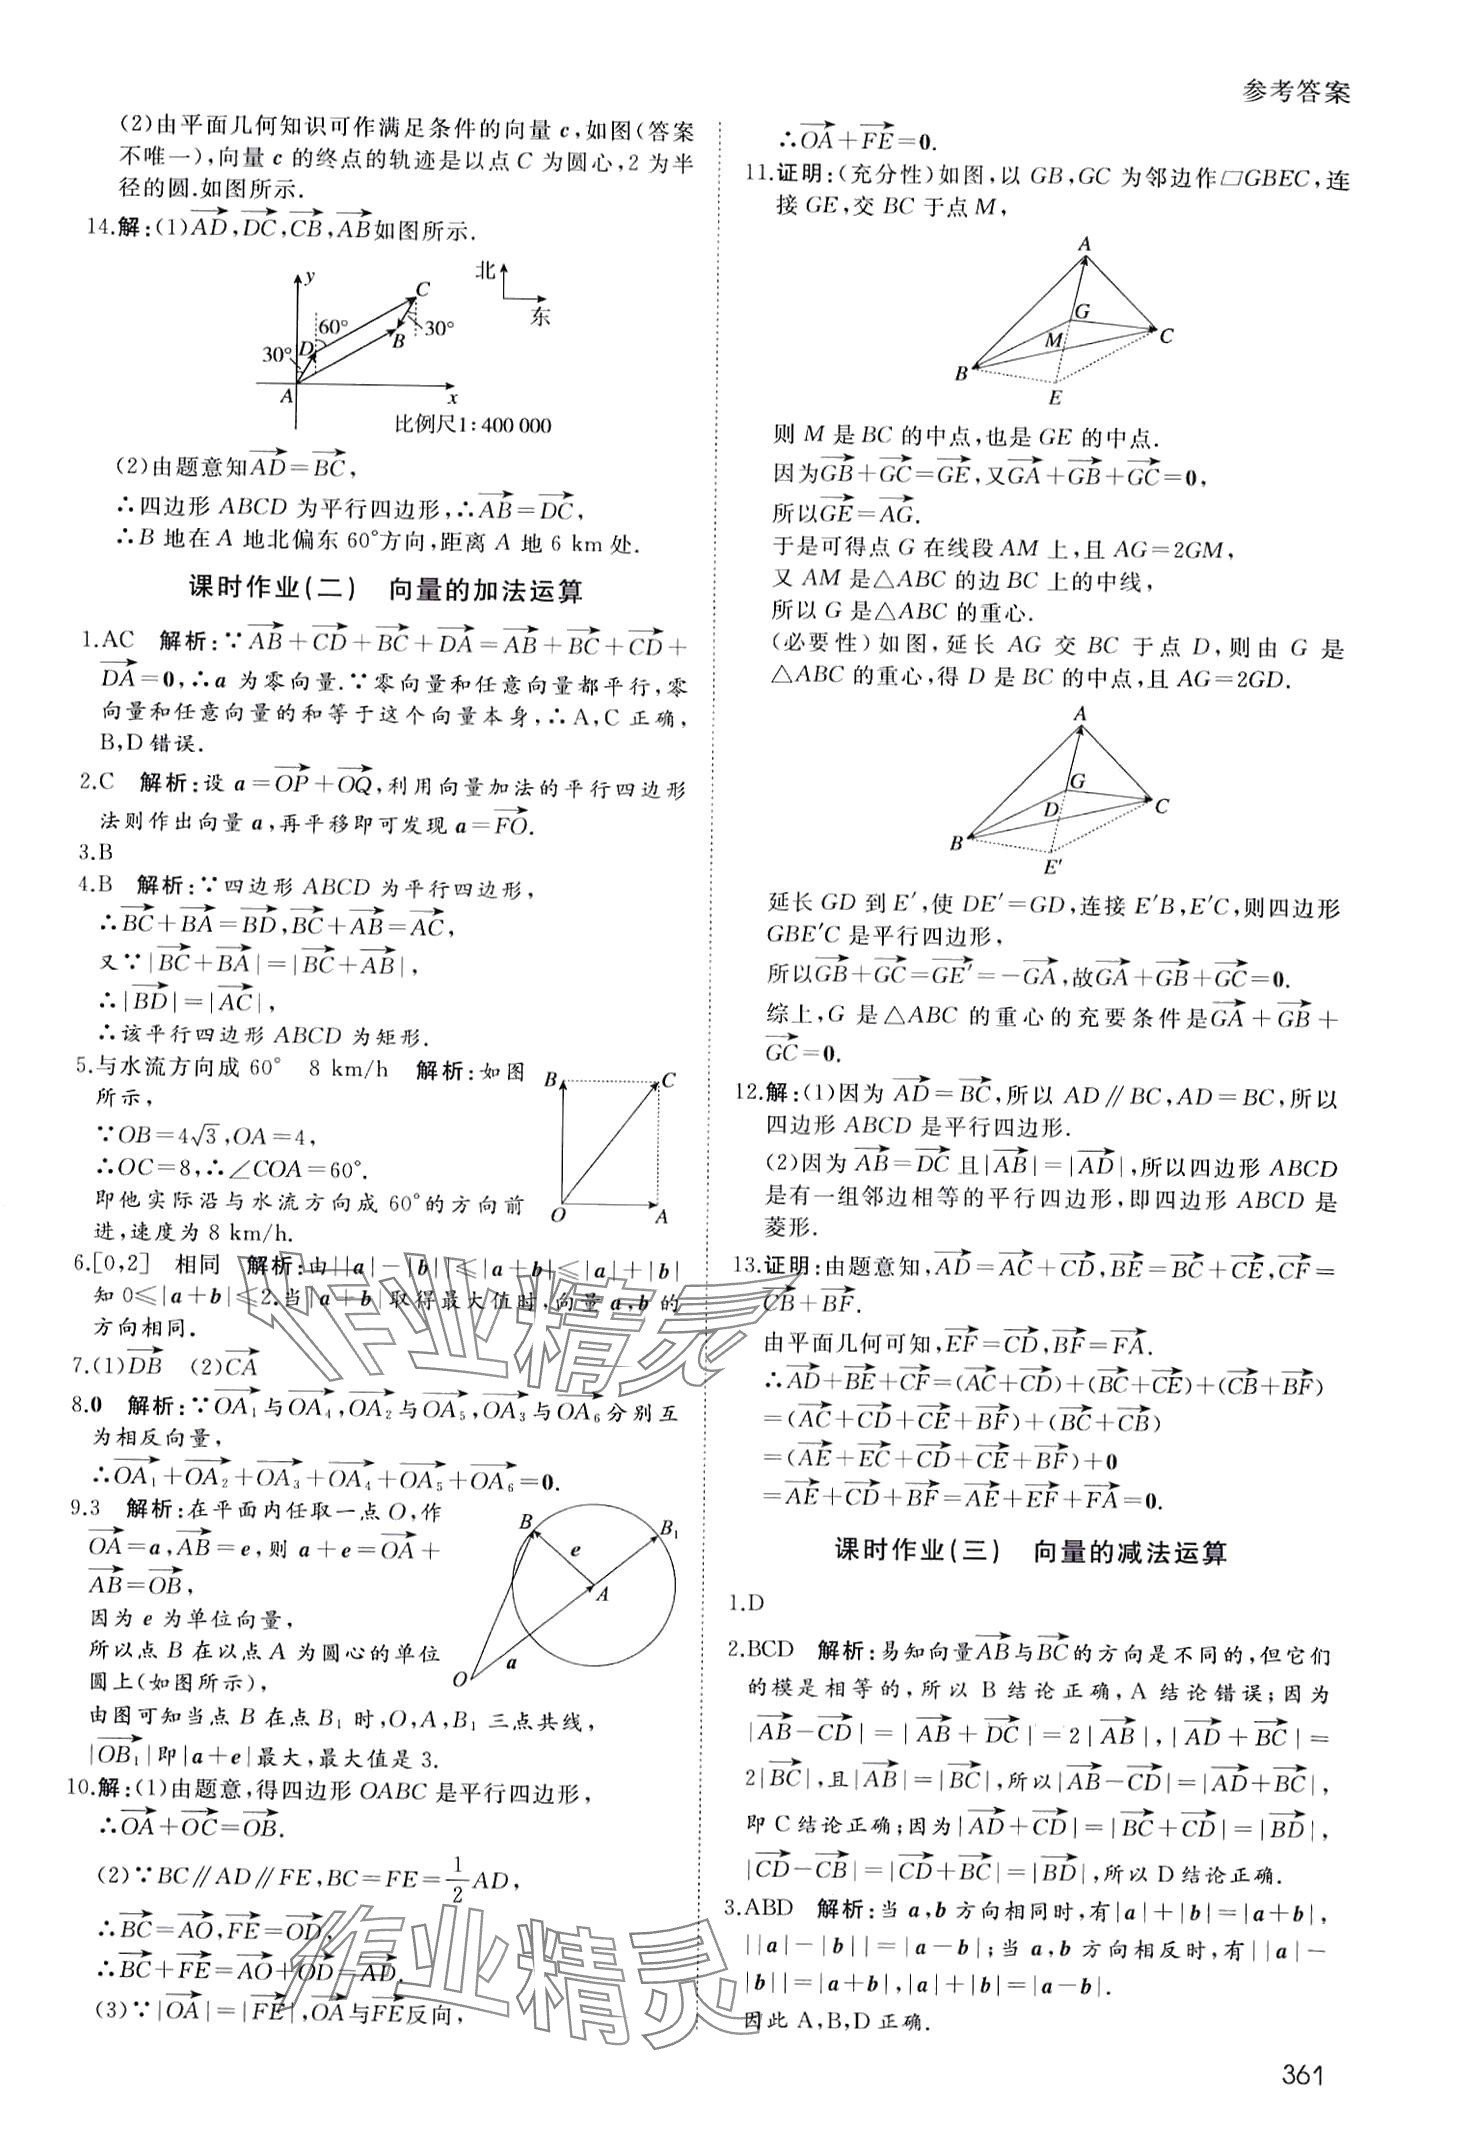 参考答案
(2)由平面几何知识可作满足条件的向量 c,如图(答案
不唯一),向量 c 的终点的轨迹是以点 C 为圆心,2 为半
径的圆.如图所示.
14.解:(1)AD,DC,CB,AB如图所示.
y
北
东
C
60°
30°
B
30°
D
A
x
比例尺1:400 000
(2)由题意知AD=BC,
∴四边形 ABCD 为平行四边形,∴AB=DC,
∴B 地在 A 地北偏东 60°方向,距离 A 地 6 km处.
课时作业(二) 向量的加法运算
1.AC 解析:∵AB+CD+BC+DA=AB+BC+CD+
DA=0,∴a 为零向量.∵零向量和任意向量都平行,零
向量和任意向量的和等于这个向量本身,∴A,C 正确,
B,D错误.
2.C 解析:设 a=OP+OQ,利用向量加法的平行四边形
法则作出向量 a,再平移即可发现 a=FO.
3.B
4.B 解析:∵四边形 ABCD 为平行四边形,
∴BC+BA=BD,BC+AB=AC,
又∵|BC+BA|=|BC+AB|,
∴|BD|=|AC|,
∴该平行四边形 ABCD 为矩形.
5.与水流方向成 60° 8 km/h 解析:如图
所示,
∵OB=4√3,OA=4,
∴OC=8,∴∠COA=60°.
即他实际沿与水流方向成 60°的方向前
进,速度为 8 km/h.
B
C
O
A
6.[0,2] 相同 解析:由||a|-|b||≤|a+b|≤|a|+|b|
知 0≤|a+b|≤2.当|a+b|取得最大值时,向量 a,b 的
方向相同.
7.(1)DB (2)CA
8.0 解析:∵OA₁与OA₄,OA₂与OA₅,OA₃与OA₆分别互
为相反向量,
∴OA₁+OA₂+OA₃+OA₄+OA₅+OA₆=0.
9.3 解析:在平面内任取一点 O,作
OA=a,AB=e,则 a+e=OA+
AB=OB,
因为 e 为单位向量,
所以点 B 在以点 A 为圆心的单位
圆上(如图所示),
由图可知当点 B 在点 B₁ 时,O,A,B₁ 三点共线,
|OB₁|即|a+e|最大,最大值是 3.
B
B₁
e
A
a
O
10.解:(1)由题意,得四边形 OABC 是平行四边形,
∴OA+OC=OB.
(2)∵BC∥AD∥FE,BC=FE=1/2AD,
∴BC=AO,FE=OD,
∴BC+FE=AO+OD=AD.
(3)∵|OA|=|FE|,OA与FE反向,
∴OA+FE=0.
11.证明:(充分性)如图,以 GB,GC 为邻边作▱GBEC,连
接 GE,交 BC 于点 M,
A
G
M
C
B
E
则 M 是 BC 的中点,也是 GE 的中点.
因为GB+GC=GE,又GA+GB+GC=0,
所以GE=AG.
于是可得点 G 在线段 AM 上,且 AG=2GM,
又 AM 是△ABC 的边 BC 上的中线,
所以 G 是△ABC 的重心.
(必要性)如图,延长 AG 交 BC 于点 D,则由 G 是
△ABC 的重心,得 D 是 BC 的中点,且 AG=2GD.
A
G
D
C
B
E′
延长 GD 到 E′,使 DE′=GD,连接 E′B,E′C,则四边形
GBE′C 是平行四边形,
所以GB+GC=GE′=-GA,故GA+GB+GC=0.
综上,G 是△ABC 的重心的充要条件是GA+GB+
GC=0.
12.解:(1)因为 AD=BC,所以 AD∥BC,AD=BC,所以
四边形 ABCD 是平行四边形.
(2)因为AB=DC且|AB|=|AD|,所以四边形 ABCD
是有一组邻边相等的平行四边形,即四边形 ABCD 是
菱形.
13.证明:由题意知,AD=AC+CD,BE=BC+CE,CF=
CB+BF.
由平面几何可知,EF=CD,BF=FA.
∴AD+BE+CF=(AC+CD)+(BC+CE)+(CB+BF)
=(AC+CD+CE+BF)+(BC+CB)
=(AE+EC+CD+CE+BF)+0
=AE+CD+BF=AE+EF+FA=0.
课时作业(三) 向量的减法运算
1.D
2.BCD 解析:易知向量AB与BC的方向是不同的,但它们
的模是相等的,所以 B 结论正确,A 结论错误;因为
|AB-CD|=|AB+DC|=2|AB|,|AD+BC|=
2|BC|,且|AB|=|BC|,所以|AB-CD|=|AD+BC|,
即 C 结论正确;因为|AD+CD|=|BC+CD|=|BD|,
|CD-CB|=|CD+BC|=|BD|,所以 D 结论正确.
3.ABD 解析:当 a,b 方向相同时,有|a|+|b|=|a+b|,
||a|-|b||=|a-b|;当 a,b 方向相反时,有||a|-
|b||=|a+b|,|a|+|b|=|a-b|.
因此 A,B,D 正确.
作业精灵
作业精灵
361